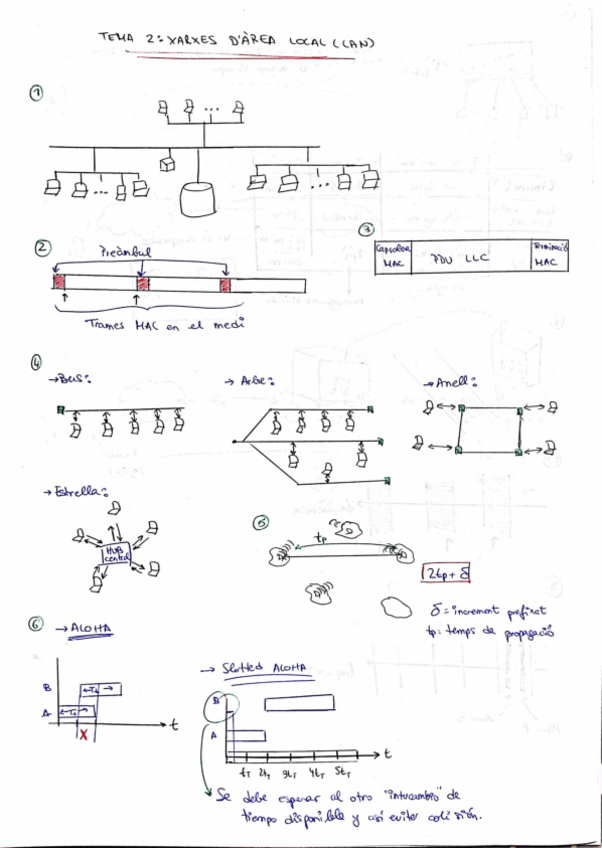 TEMA 2: XARXES D'ÀREA LOCAL (LAN)
1
2
Preàmbul
Trames MAC en el medi
3
Capçalera MAC
PDU LLC
Terminació MAC
4
→Bus:
→ Arbre:
→Anell:
→Estrella:
HUB central
5
tp
2tp + δ
δ = increment prefixat
tp = temps de propagació
6
→ ALOHA
B
A
t
X
→ Slotted ALOHA
B
A
t
tT 2tT 3tT 4tT 5tT
Se debe esperar al otro "intercambio" de
tiempo disponible y así evitar colisión.